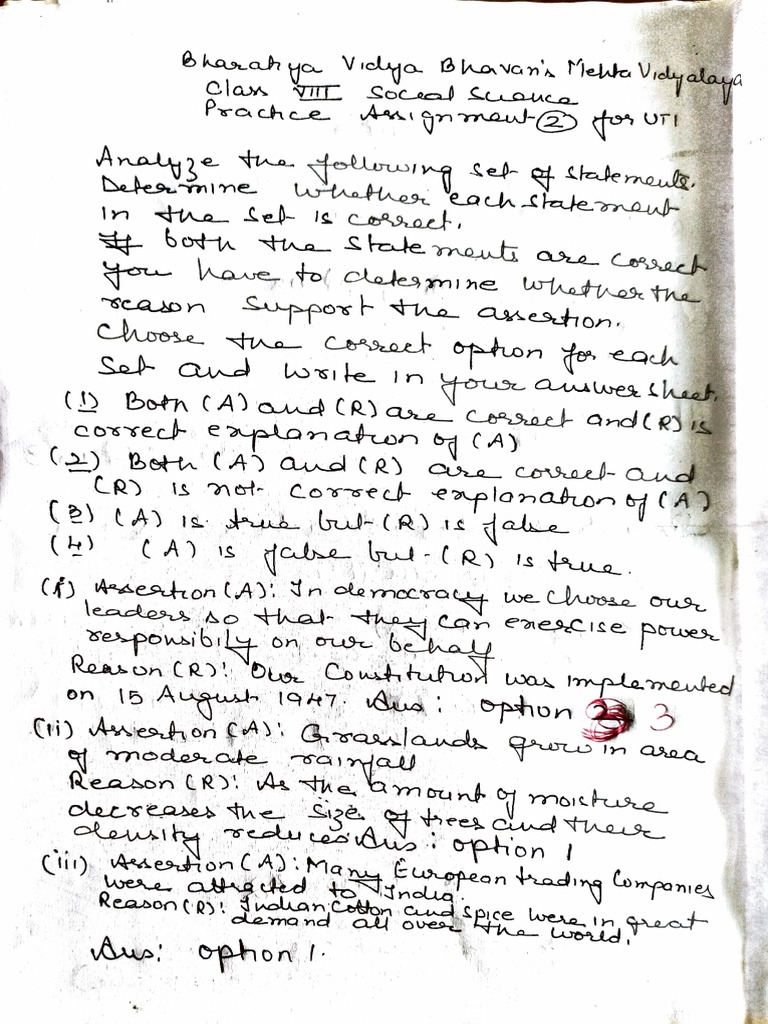 Bharatiya Vidya Bhavan's Mehta Vidyalaya
Class VIII Social Science
Practice Assignment 2 for UT1
Analyze the following set of statements.
Determine whether each statement
in the set is correct.
If both the statements are correct
you have to determine whether the
reason support the assertion.
Choose the correct option for each
set and write in your answer sheet.
(1) Both (A) and (R) are correct and (R) is
correct explanation of (A)
(2) Both (A) and (R) are correct and
(R) is not correct explanation of (A)
(3) (A) is true but (R) is false
(4) (A) is false but (R) is true.
(i) Assertion (A): In democracy we choose our
leaders so that they can exercise power
responsibily on our behalf
Reason (R): Our Constitution was implemented
on 15 August 1947. Ans: option 3
(ii) Assertion (A): Grasslands grow in area
of moderate rainfall
Reason (R): As the amount of moisture
decreases the size of trees and their
density reduces Ans: option 1
(iii) Assertion (A): Many European trading Companies
were attracted to India.
Reason (R): Indian Cotton and spice were in great
demand all over the world.
Ans: option 1.